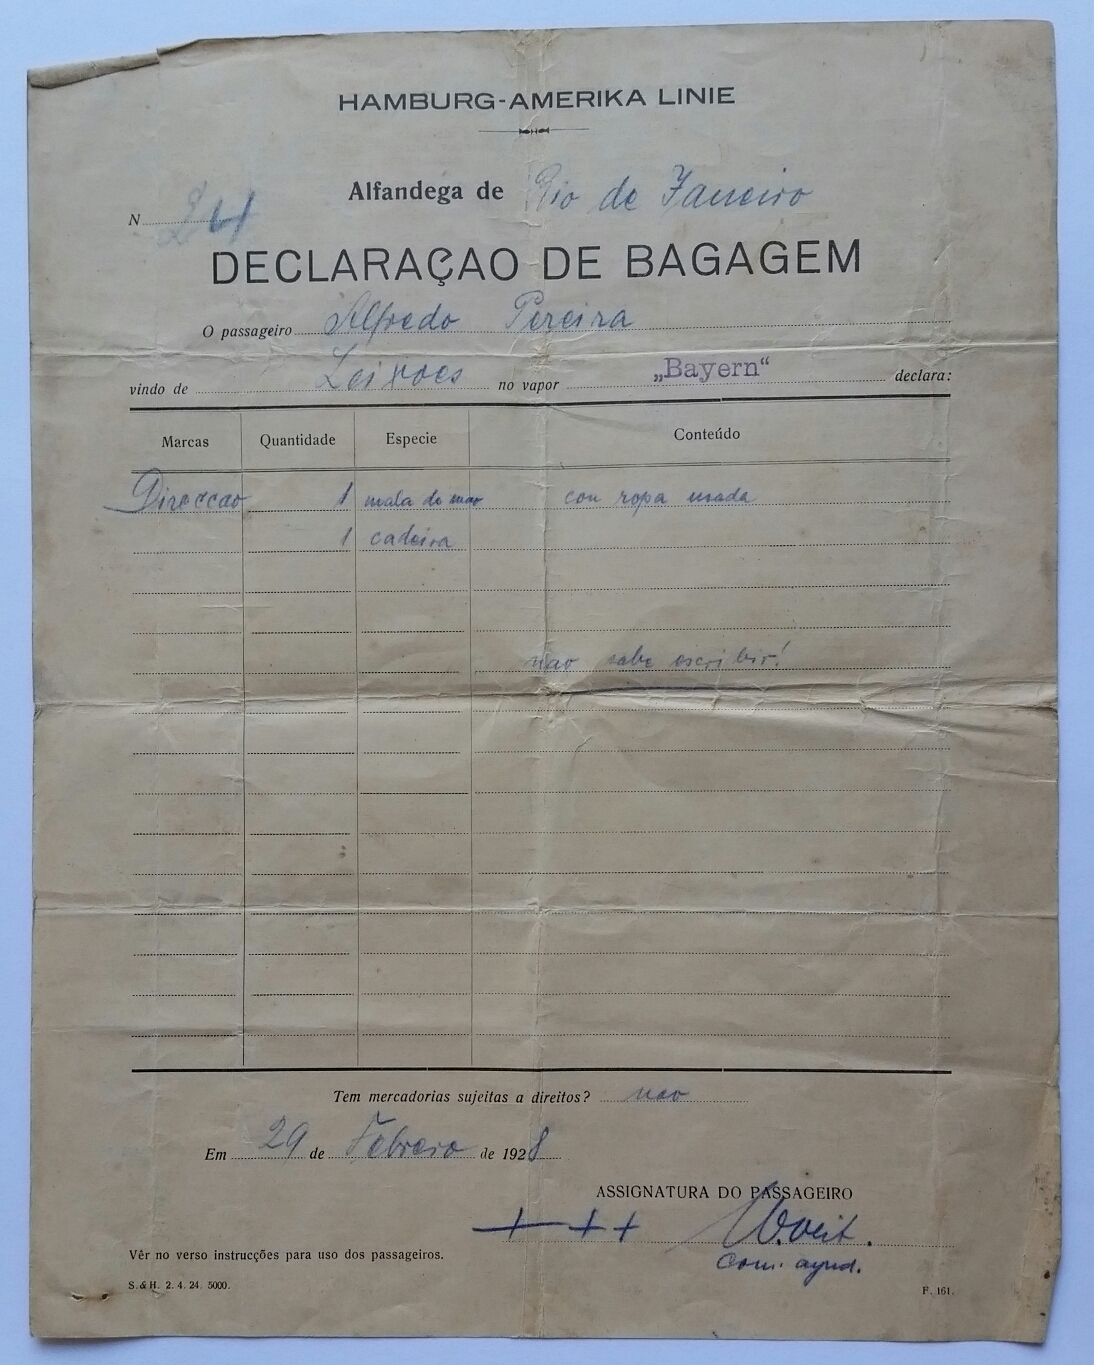 HAMBURG-AMERIKA LINIE
Alfandega de Rio de Janeiro
N
DECLARAÇAO DE BAGAGEM
O passageiro Alfredo Pereira
vindo de Leixoes no vapor „Bayern“ declara:
Marcas Quantidade Especie Conteúdo
Direccao 1 mala de mao con ropa usada
1 cadeira
nao sabe escribir!
Tem mercadorias sujeitas a direitos? nao
Em 29 de Febrero de 1928
ASSIGNATURA DO PASSAGEIRO
+ + +
Com. ayud.
Vêr no verso instrucções para uso dos passageiros.
S. & H. 2. 4. 24. 5000. F. 161.